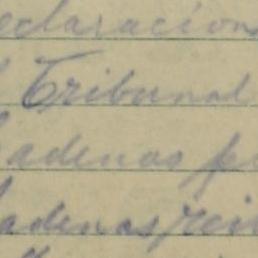 eclaracion
Tribunal
adenas pe
adenas, rein